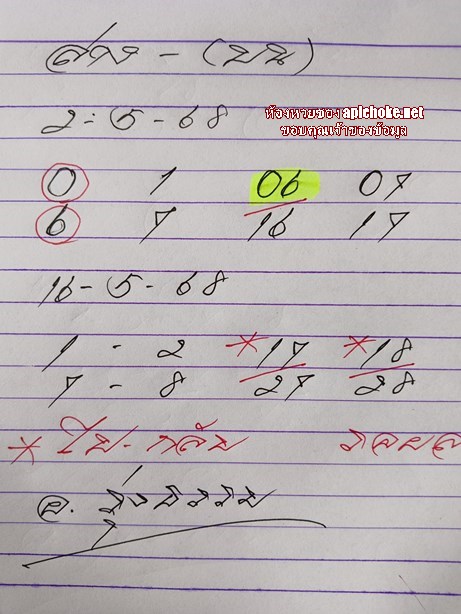 ล่าง - (บน)
ห้องหวยของaplchoke.net
ขอบคุณเจ้าของข้อมูล
2-5-68
0 1 06 07
6 7 16 17
16-5-68
1 - 2 *17 *18
7 - 8 27 28
* ไป-กลับ
อ.